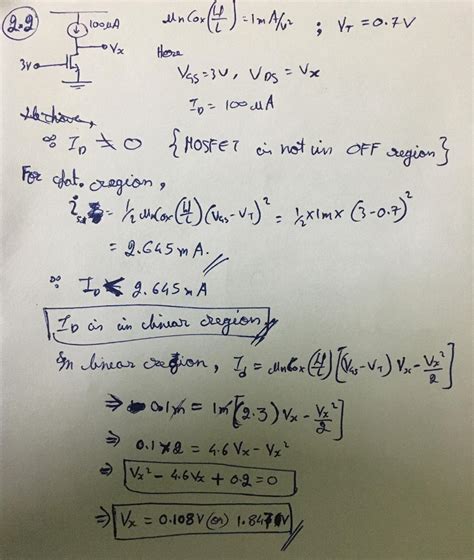 2.2
100μA
μnCox(W/L) = 1mA/V² ; V_T = 0.7V
Vx
3V
Here
V_GS = 3V, V_DS = Vx
I_D = 100μA
∵ I_D ≠ 0 {MOSFET is not in OFF region}
For sat. region,
i_sat = 1/2 μnCox(W/L)(V_GS - V_T)² = 1/2 × 1m × (3 - 0.7)²
= 2.645 mA.
∵ I_D < 2.645 mA
I_D is in linear region.
In linear region, I_d = μnCox(W/L)[(V_GS - V_T) Vx - Vx²/2]
⇒ 0.1m = 1m[(2.3) Vx - Vx²/2]
⇒ 0.1 × 2 = 4.6 Vx - Vx²
⇒ Vx² - 4.6Vx + 0.2 = 0
⇒ Vx = 0.108V (or)